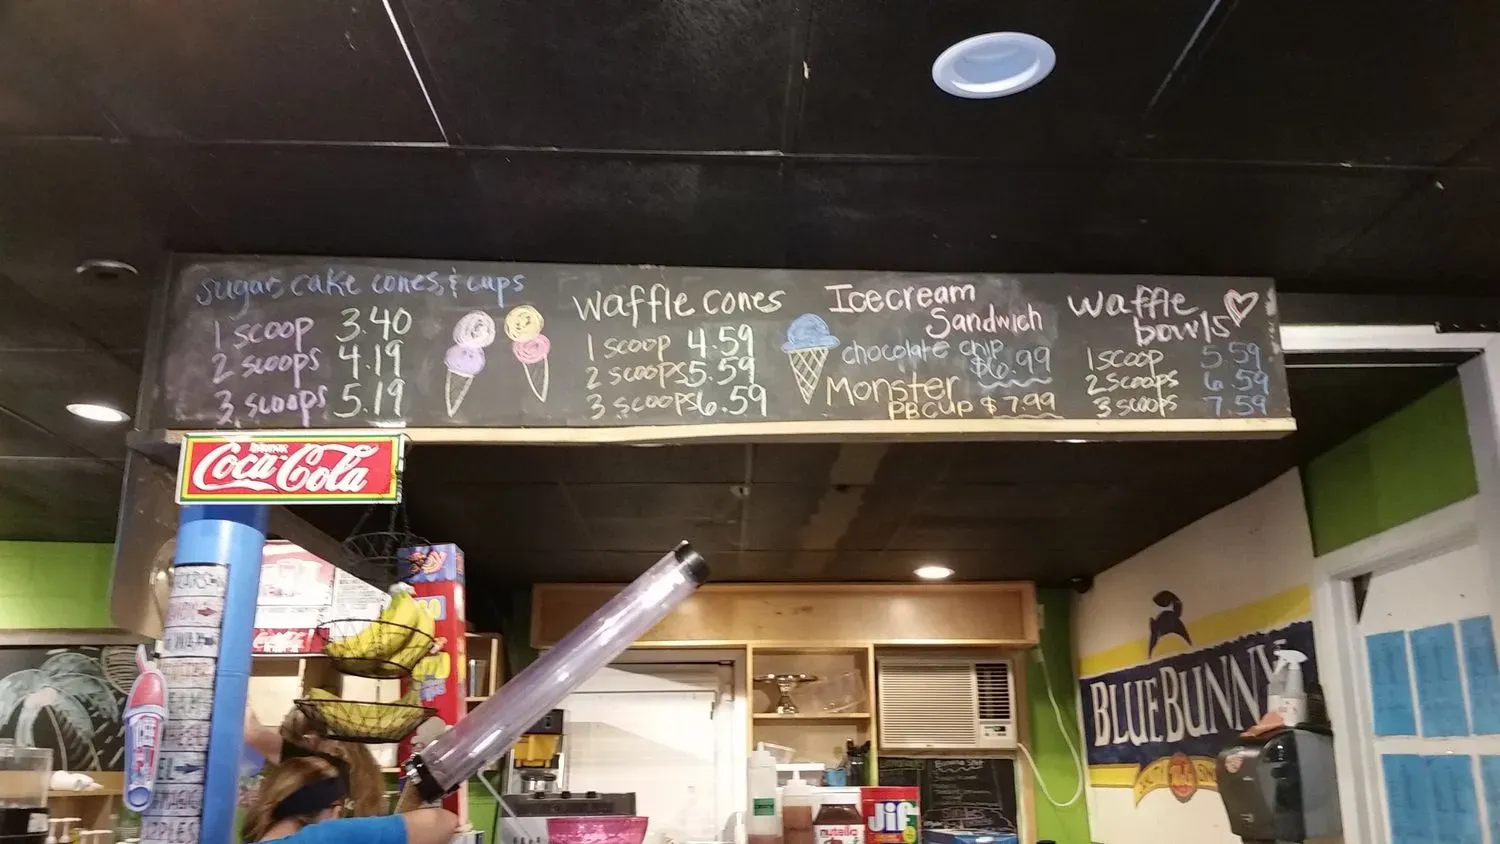 sugar, cake cones, & cups
1 scoop 3.40
2 scoops 4.19
3 scoops 5.19
Waffle cones
1 scoop 4.59
2 scoops 5.59
3 scoops 6.59
Icecream
Sandwich
chocolate chip
$6.99
Monster
PB CUP $7.99
Waffle
bowls
1 scoop 5.59
2 scoops 6.59
3 scoops 7.59
DRINK
Coca-Cola
BLUE BUNNY
nutella
Jif